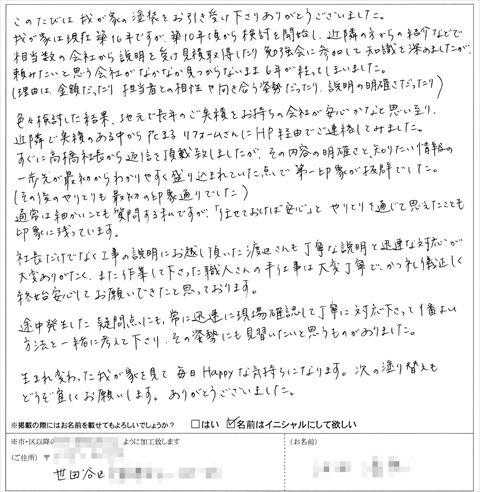 このたびは我が家の塗装をお引き受け下さりありがとうございました。
我が家は現在築16年ですが、築10年頃から検討を開始し、近隣の方からの紹介などで
相当数の会社から説明を受け見積取得したり勉強会に参加して知識を深めましたが、
頼みたいと思う会社がなかなか見つからないまま6年が経ってしまいました。
(理由は、金額だったり担当者との相性や向き合う姿勢だったり、説明の明確さだったり)
色々検討した結果、地元で長年のご実績をお持ちの会社が安心かなと思い至り、
近隣で実績のある中からたまるリフォームさんにHP経由でご連絡してみました。
すぐに高橋社長から返信を頂戴致しましたが、その内容の明確さと、知りたい情報の
一歩先が最初からわかりやすく盛り込まれていた点で第一印象が抜群でした。
(その後のやりとりも最初の印象通りでした)
通常は細かいことも質問する私ですが、「任せておけば安心」とやりとりを通じて思えたことも
印象に残っています。
社長だけでなく工事の説明にお越し頂いた渡辺さんも丁寧な説明と迅速な対応が
大変ありがたく、また作業して下さった職人さんの手仕事は大変丁寧で、かつ礼儀正しく
終始安心してお願いできたと思っております。
途中発生した疑問点にも、常に迅速に現場確認して丁寧に対応下さって1番よい
方法を一緒に考えて下さり、その姿勢にも見習いたいと思うものがありました。
生まれ変わった我が家を見て毎日Happyな気持ちになります。次の塗り替えも
どうぞ宜しくお願いします。ありがとうございました。
※掲載の際にはお名前を載せてもよろしいでしょうか? □はい ☑名前はイニシャルにして欲しい
※市・区以降の ように加工致します
(ご住所) 〒
世田谷区
(お名前)